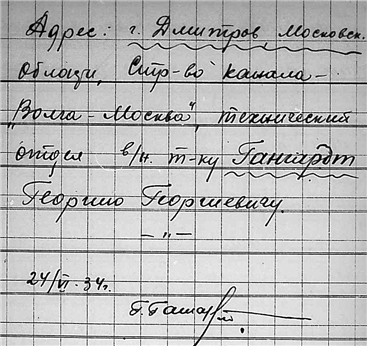 Адрес: г. Дмитров, Московск.
Области, Стр-во канала –
„Волга – Москва", технический
отдел в/н. т-ку Гангардт
Георгию Георгиевичу.
– „ –
24/VI-34г.